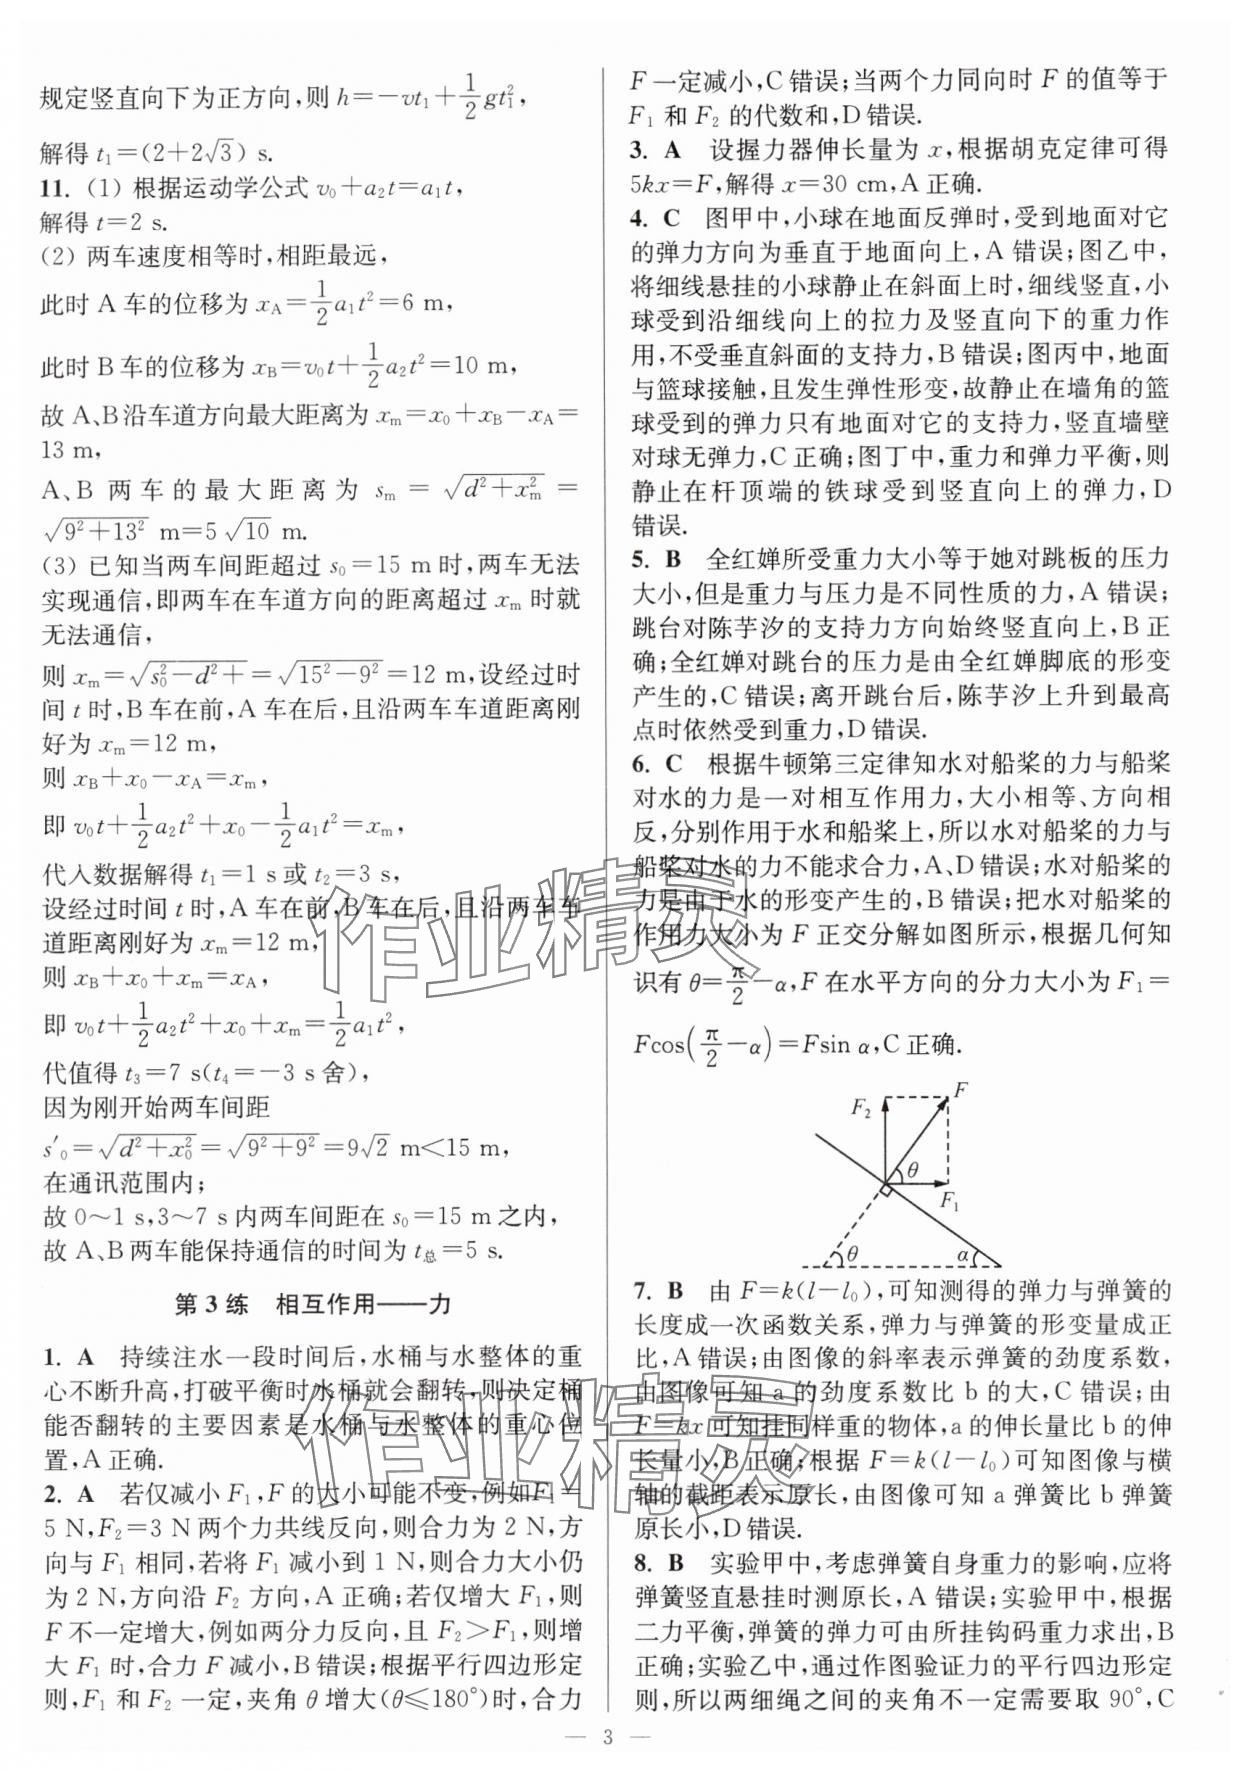 规定竖直向下为正方向,则 h=-vt₁+1/2 gt₁²,
解得 t₁=(2+2√3) s.
11. (1) 根据运动学公式 v₀+a₂t=a₁t,
解得 t=2 s.
(2) 两车速度相等时,相距最远,
此时 A 车的位移为 x_A=1/2 a₁t²=6 m,
此时 B 车的位移为 x_B=v₀t+1/2 a₂t²=10 m,
故 A、B 沿车道方向最大距离为 x_m=x₀+x_B-x_A=
13 m,
A、B 两车的最大距离为 s_m=√(d²+x_m²)=
√(9²+13²) m=5√10 m.
(3) 已知当两车间距超过 s₀=15 m 时,两车无法
实现通信,即两车在车道方向的距离超过 x_m 时就
无法通信,
则 x_m=√(s₀²-d²+)=√(15²-9²)=12 m,设经过时
间 t 时,B 车在前,A 车在后,且沿两车车道距离刚
好为 x_m=12 m,
则 x_B+x₀-x_A=x_m,
即 v₀t+1/2 a₂t²+x₀-1/2 a₁t²=x_m,
代入数据解得 t₁=1 s 或 t₂=3 s,
设经过时间 t 时,A 车在前,B 车在后,且沿两车车
道距离刚好为 x_m=12 m,
则 x_B+x₀+x_m=x_A,
即 v₀t+1/2 a₂t²+x₀+x_m=1/2 a₁t²,
代值得 t₃=7 s(t₄=-3 s 舍),
因为刚开始两车间距
s′₀=√(d²+x₀²)=√(9²+9²)=9√2 m<15 m,
在通讯范围内;
故 0~1 s,3~7 s 内两车间距在 s₀=15 m 之内,
故 A、B 两车能保持通信的时间为 t总=5 s.
第 3 练 相互作用——力
1. A 持续注水一段时间后,水桶与水整体的重
心不断升高,打破平衡时水桶就会翻转,则决定桶
能否翻转的主要因素是水桶与水整体的重心位
置,A 正确.
2. A 若仅减小 F₁,F 的大小可能不变,例如F₁=
5 N,F₂=3 N 两个力共线反向,则合力为 2 N,方
向与 F₁ 相同,若将 F₁ 减小到 1 N,则合力大小仍
为 2 N,方向沿 F₂ 方向,A 正确;若仅增大 F₁,则
F 不一定增大,例如两分力反向,且 F₂>F₁,则增
大 F₁ 时,合力 F 减小,B 错误;根据平行四边形定
则,F₁ 和 F₂ 一定,夹角 θ 增大(θ≤180°)时,合力
F 一定减小,C 错误;当两个力同向时 F 的值等于
F₁ 和 F₂ 的代数和,D 错误.
3. A 设握力器伸长量为 x,根据胡克定律可得
5kx=F,解得 x=30 cm,A 正确.
4. C 图甲中,小球在地面反弹时,受到地面对它
的弹力方向为垂直于地面向上,A 错误;图乙中,
将细线悬挂的小球静止在斜面上时,细线竖直,小
球受到沿细线向上的拉力及竖直向下的重力作
用,不受垂直斜面的支持力,B 错误;图丙中,地面
与篮球接触,且发生弹性形变,故静止在墙角的篮
球受到的弹力只有地面对它的支持力,竖直墙壁
对球无弹力,C 正确;图丁中,重力和弹力平衡,则
静止在杆顶端的铁球受到竖直向上的弹力,D
错误.
5. B 全红婵所受重力大小等于她对跳板的压力
大小,但是重力与压力是不同性质的力,A 错误;
跳台对陈芋汐的支持力方向始终竖直向上,B 正
确;全红婵对跳台的压力是由全红婵脚底的形变
产生的,C 错误;离开跳台后,陈芋汐上升到最高
点时依然受到重力,D 错误.
6. C 根据牛顿第三定律知水对船桨的力与船桨
对水的力是一对相互作用力,大小相等、方向相
反,分别作用于水和船桨上,所以水对船桨的力与
船桨对水的力不能求合力,A、D 错误;水对船桨的
力是由于水的形变产生的,B 错误;把水对船桨的
作用力大小为 F 正交分解如图所示,根据几何知
识有 θ=π/2-α,F 在水平方向的分力大小为 F₁=
Fcos(π/2-α)=Fsin α,C 正确.
F₂ F
θ
F₁
θ α
7. B 由 F=k(l-l₀),可知测得的弹力与弹簧的
长度成一次函数关系,弹力与弹簧的形变量成正
比,A 错误;由图像的斜率表示弹簧的劲度系数,
由图像可知 a 的劲度系数比 b 的大,C 错误;由
F=kx 可知挂同样重的物体,a 的伸长量比 b 的伸
长量小,B 正确;根据 F=k(l-l₀)可知图像与横
轴的截距表示原长,由图像可知 a 弹簧比 b 弹簧
原长小,D 错误.
8. B 实验甲中,考虑弹簧自身重力的影响,应将
弹簧竖直悬挂时测原长,A 错误;实验甲中,根据
二力平衡,弹簧的弹力可由所挂钩码重力求出,B
正确;实验乙中,通过作图验证力的平行四边形定
则,所以两细绳之间的夹角不一定需要取 90°,C
— 3 —
作业精灵
作业精灵